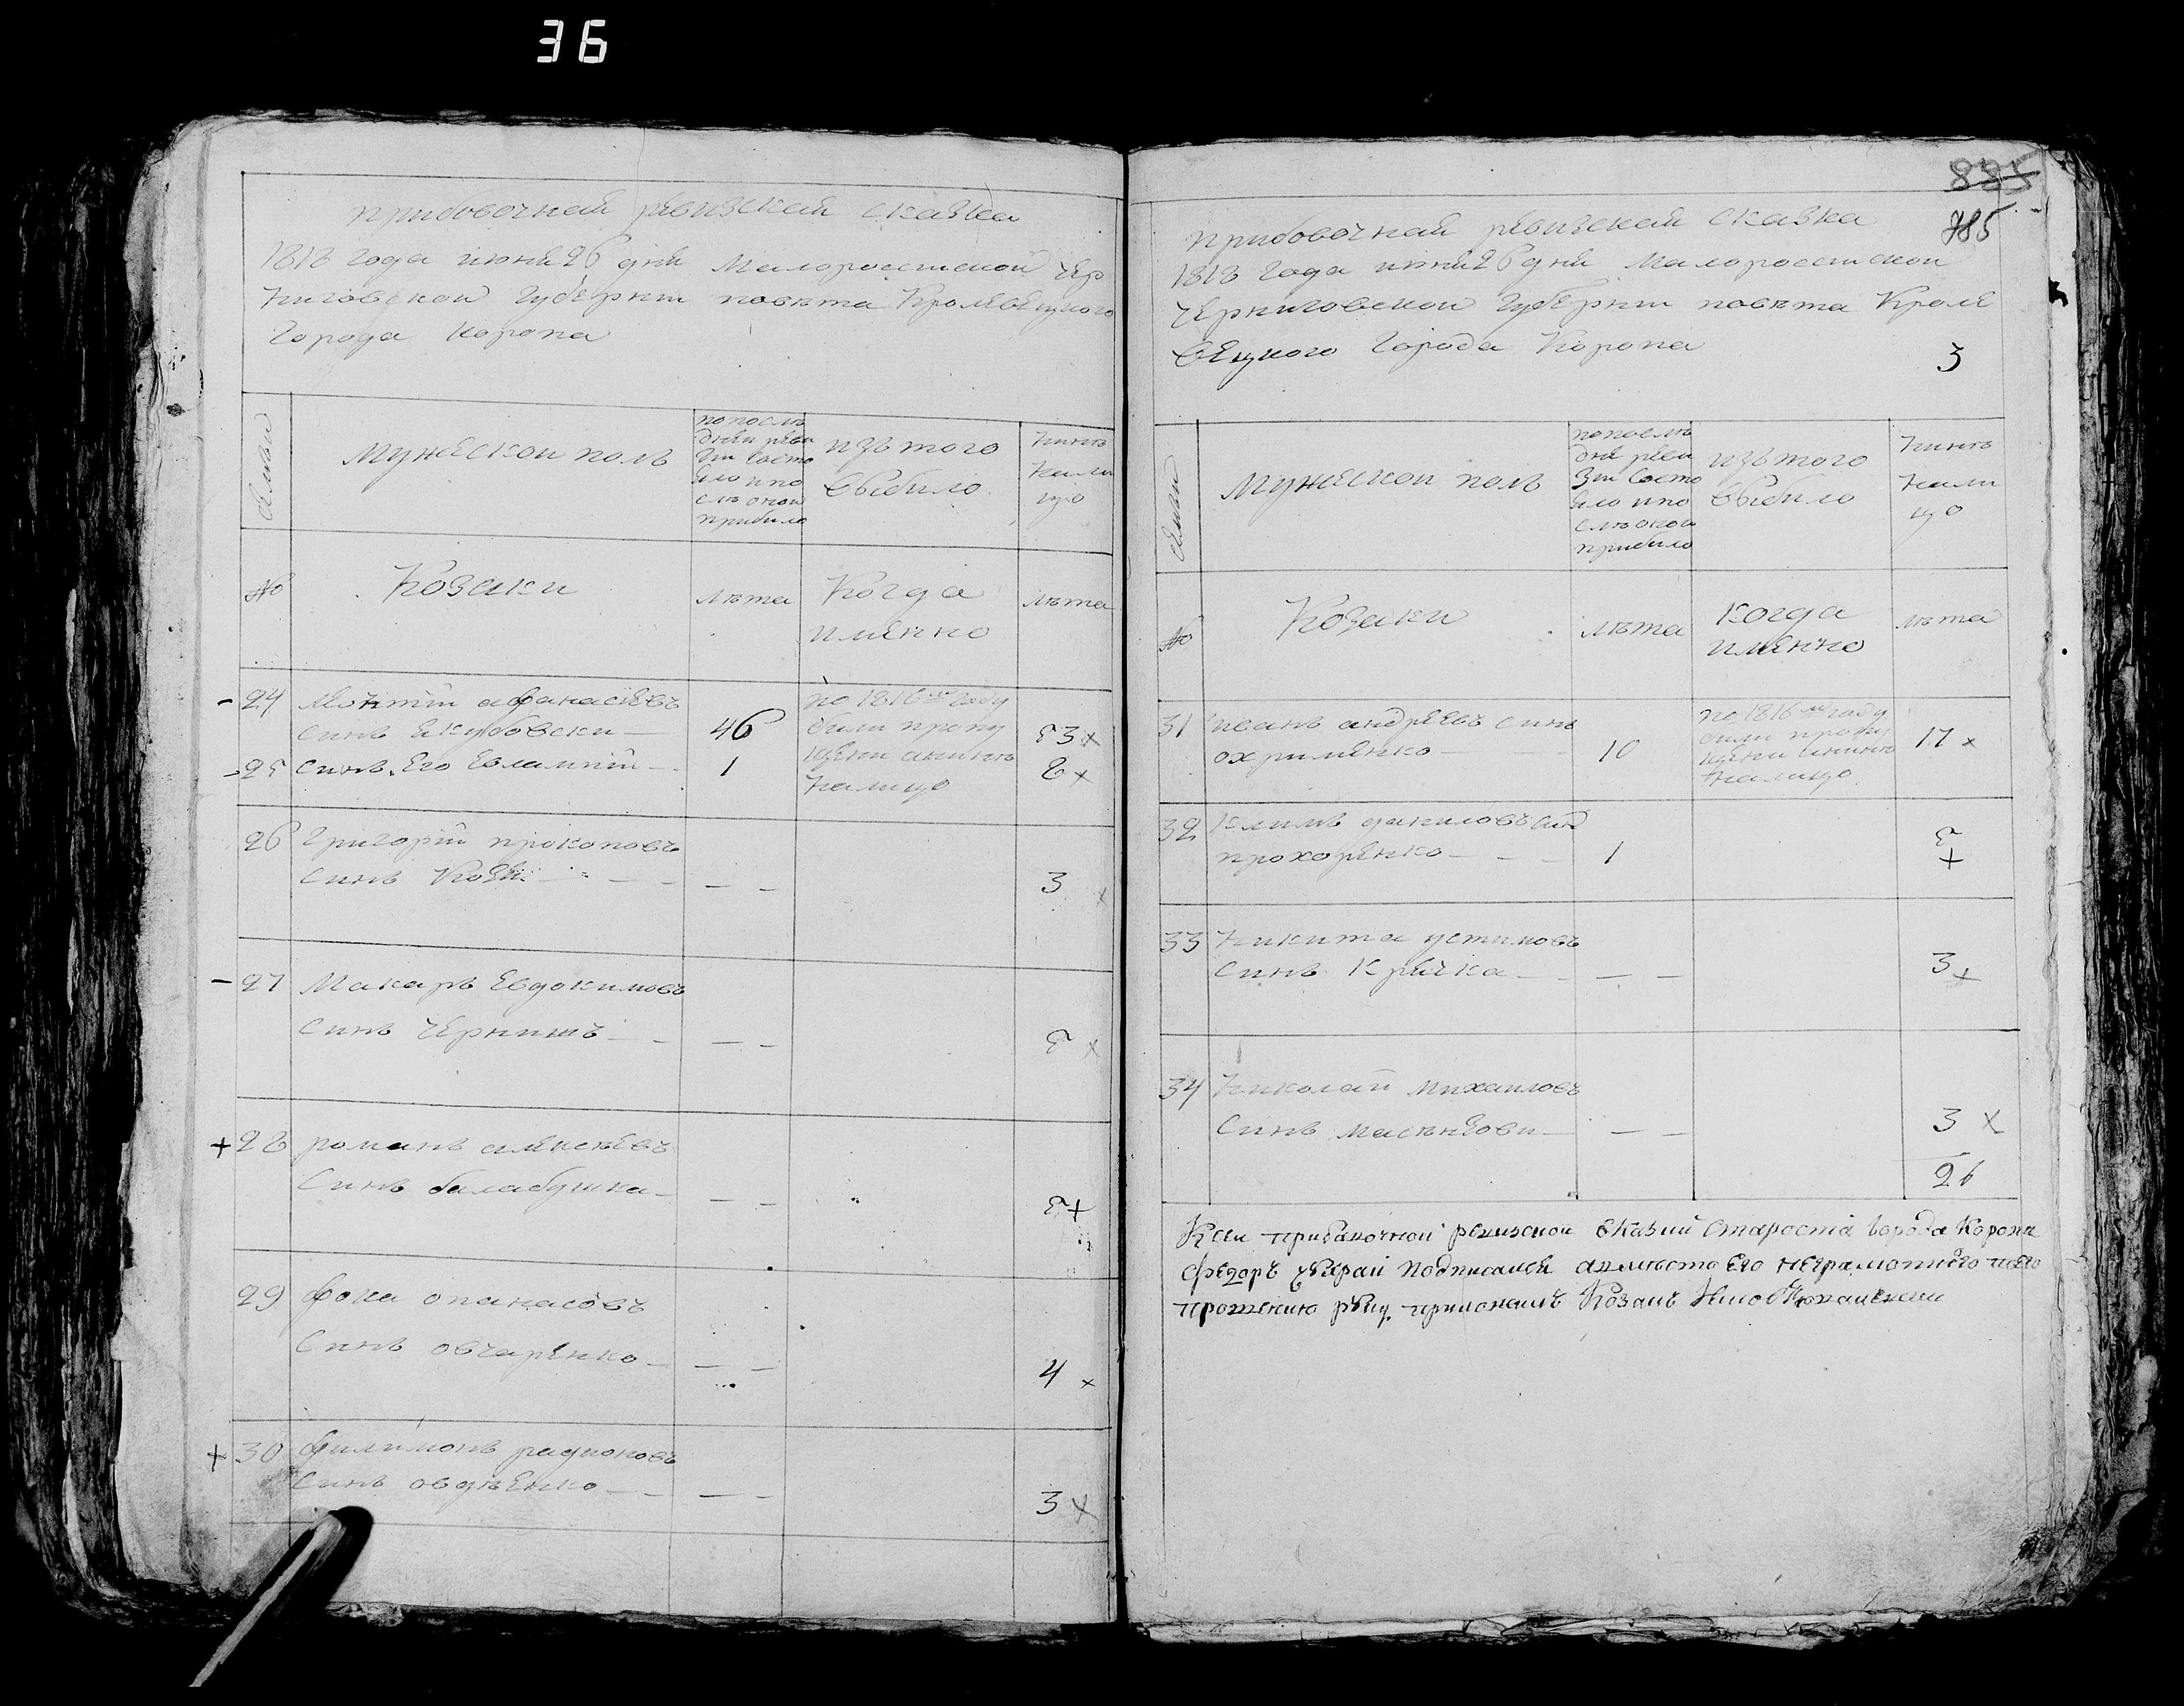 36
прибовочная ревизская сказка
1818 года июня 26 дня Малороссиской Чер
ниговской Губернии повета Кролевецкого
Города Коропа
Семьи
Мужескои полъ
по послѣ
дней реви
зии состо
яло и по
слѣ оной
прибыло
изъ того
выбило
нинѣ
на ли
цо
№
Козаки
лѣта
Когда
именно
лѣта
24 афанасиевъ
синъ Якубовски 46
по 1816 м году
были пропу
щени а нинѣ
налицо
53 х
25 синъ его Евлампий 1 8 х
26 Григорий прокоповъ
синъ 3 х
27 Макаръ Евдокимовъ
синъ Чернишъ 3 х
+ 28 романъ алексѣевъ
Синъ балабушка 3 +
29 фока опанасовъ
Синъ овчаренко 4 х
+ 30 филимонъ радионовъ
синъ овдѣенко 3 х
835
785
прибовочная ревиская сказка
1818 года июня 26 дня Малороссиской
Черниговской Губернии повета Кроле
вецкого Города Коропа
3
Семьи
Мужескои полъ
по послѣ
дне реви
зии состо
яло и по
слѣ оной
прибило
изъ того
выбило
нинѣ
на ли
цо
№
Козаки
лѣта
когда
именно
лѣта
31 иванъ андреевъ синъ
охрименко 10
по 1816 м году
были пропу
щени а нинѣ
налицо
17 х
32 Климъ даниловъ син
прохоренко 1 3 +
33 Никита устимовъ
синъ Кричка 3 +
34 Николай михаиловъ
Синъ 3 х
26
К сей прибавочной ревизской сказки староста города Коропа
Федоръ подписался а вместо его неграмотного по его
прошению руку приложилъ Козакъ